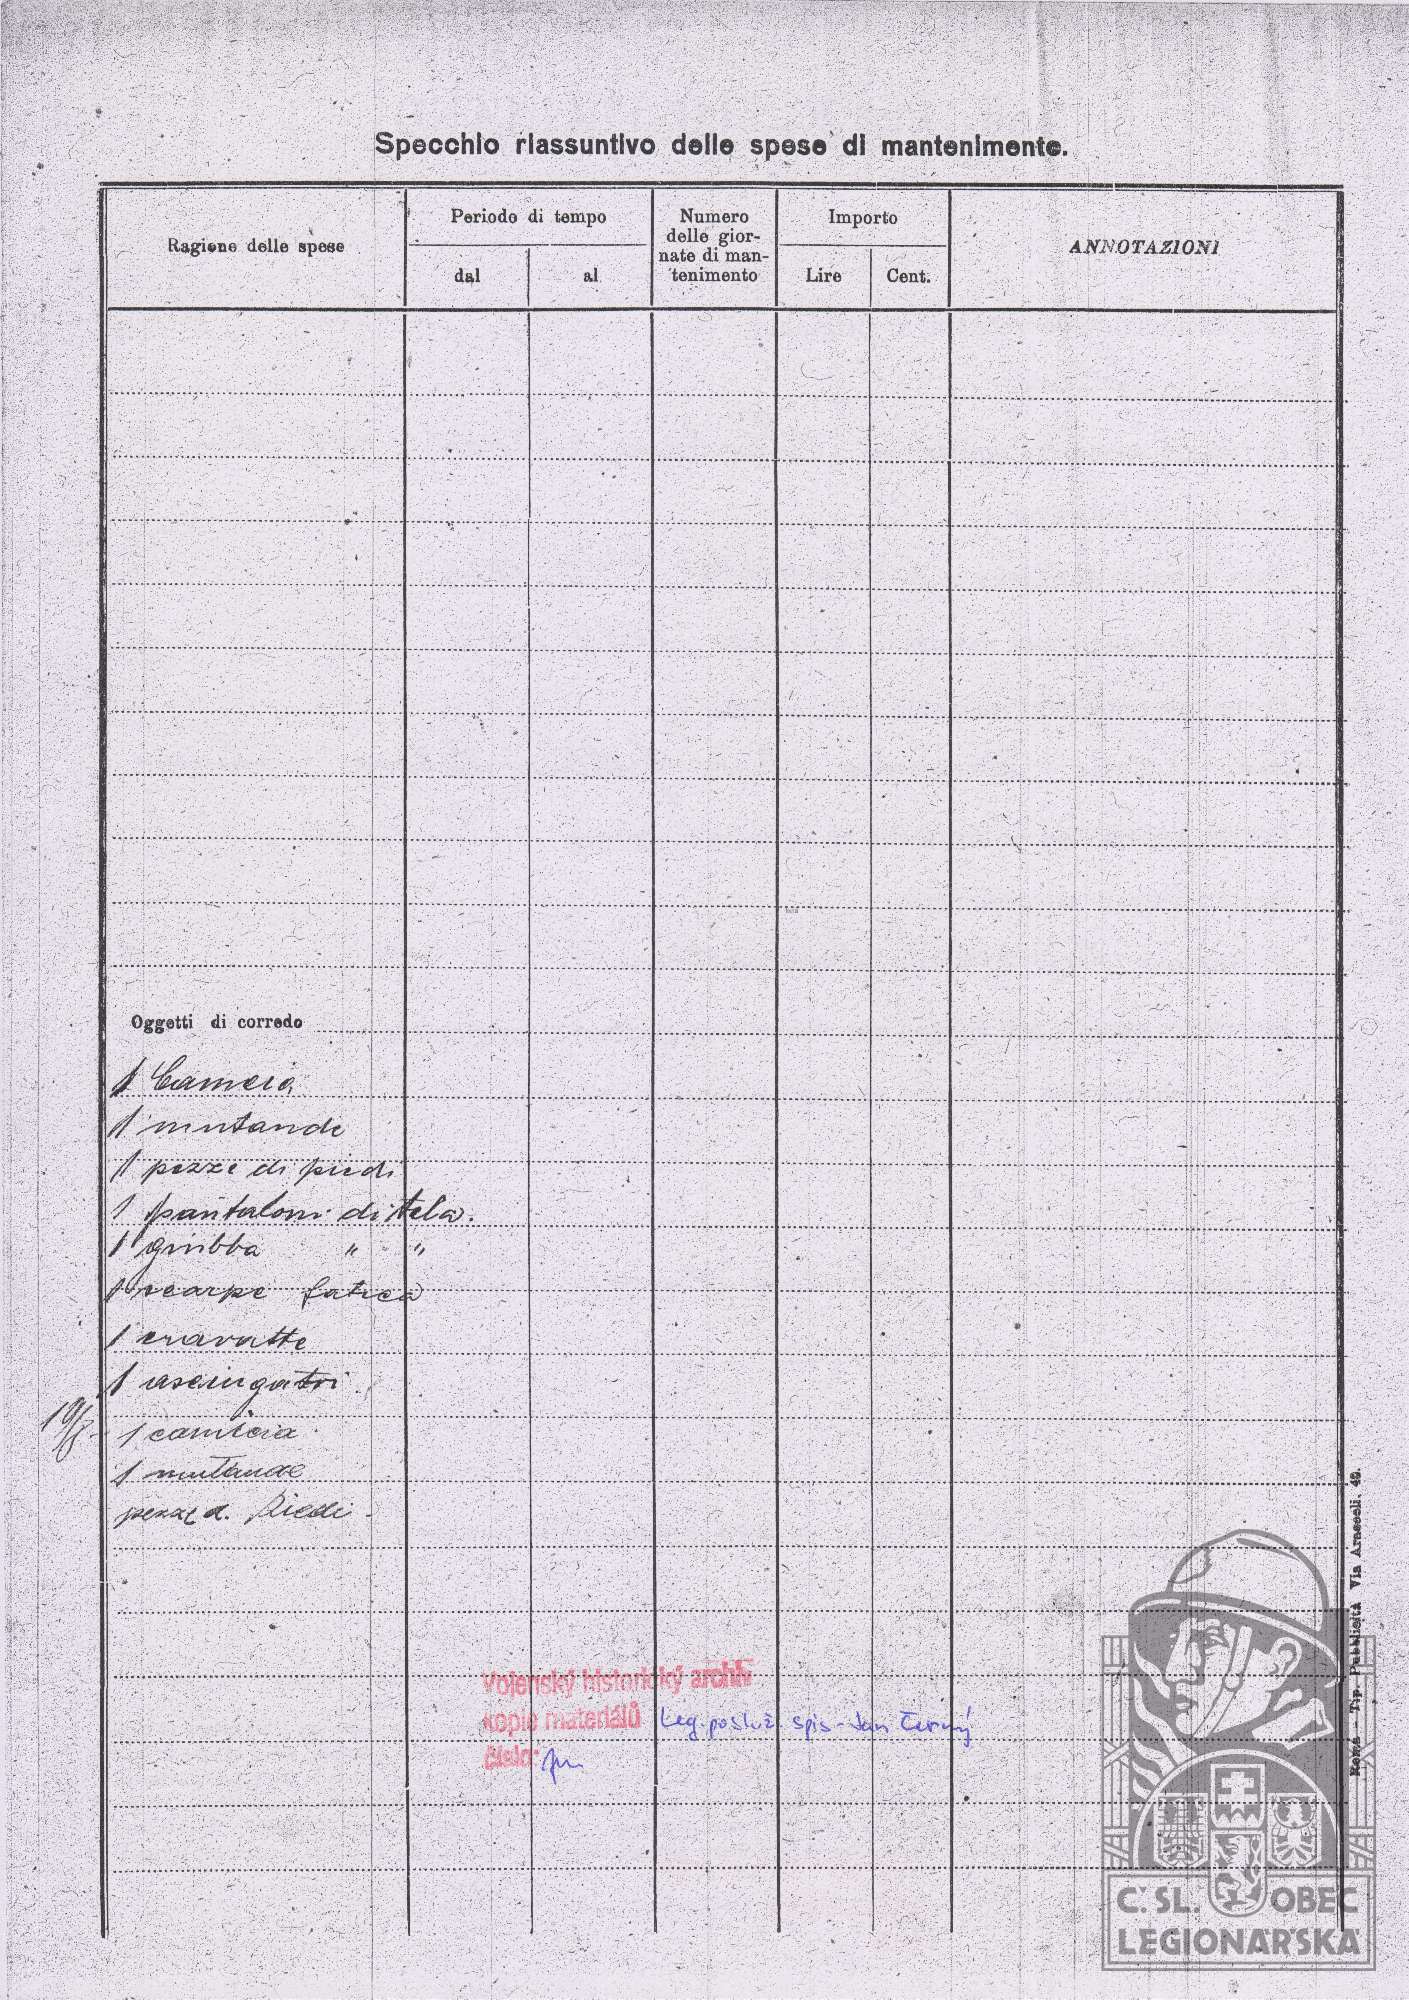 Specchio riassuntivo delle spese di mantenimente.
Ragione delle spese
Periodo di tempo
dal
al
Numero
delle gior-
nate di man-
tenimento
Importo
Lire
Cent.
ANNOTAZIONI
Oggetti di corredo
1 Camcia
1 mutande
1 pezze di piedi
1 pantaloni di tela.
1 giubba " "
1 scarpe fatica
1 cravatte
1 asciugatoi
1 camicia
1 mutande
pezze d. Piedi
Vojenský historický archiv
kopie materiálů Leg. posluž. spis - Jan Černý
číslo:
Roma - Tip. Pubblicità Via Aracoeli, 49.
Č. SL. OBEC
LEGIONÁŘSKÁ